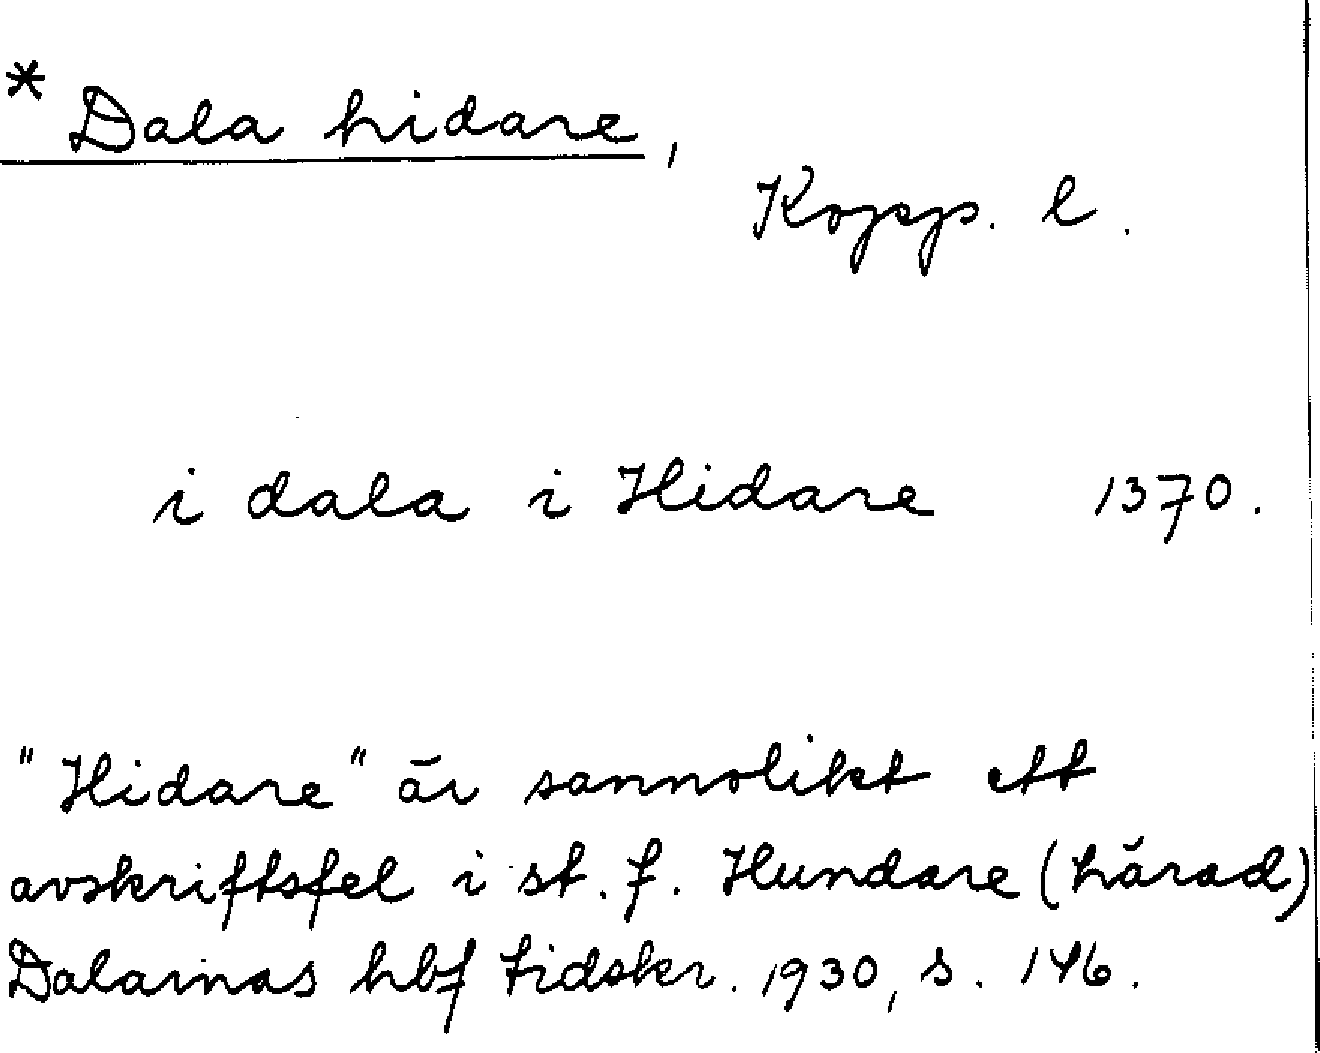 * Dala hidare,
Kopp. l.
i dala i Hidare 1370.
"Hidare" är sannolikt ett
avskriftsfel i st. f. Hundare (härad)
Dalarnas hbf tidskr. 1930, s. 146.